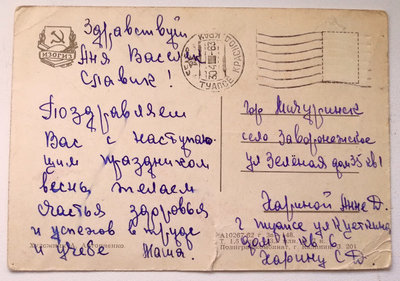 Здравствуй
Аня Васелёк
Славик!
Поздравляем
Вас с наступаю
щим праздником
весны, желаем
счастья здоровья
и успехов в труде
и учебе Маша.
ИЗОГИЗ
ТУАПСЕ
гор Мичуринск
село Заворонежское
ул Зелёная дом 35 кв 1
Хариной Анне Д.
г Туапсе ул К Цеткина
дом 1 кв 6
Харину С. Д.